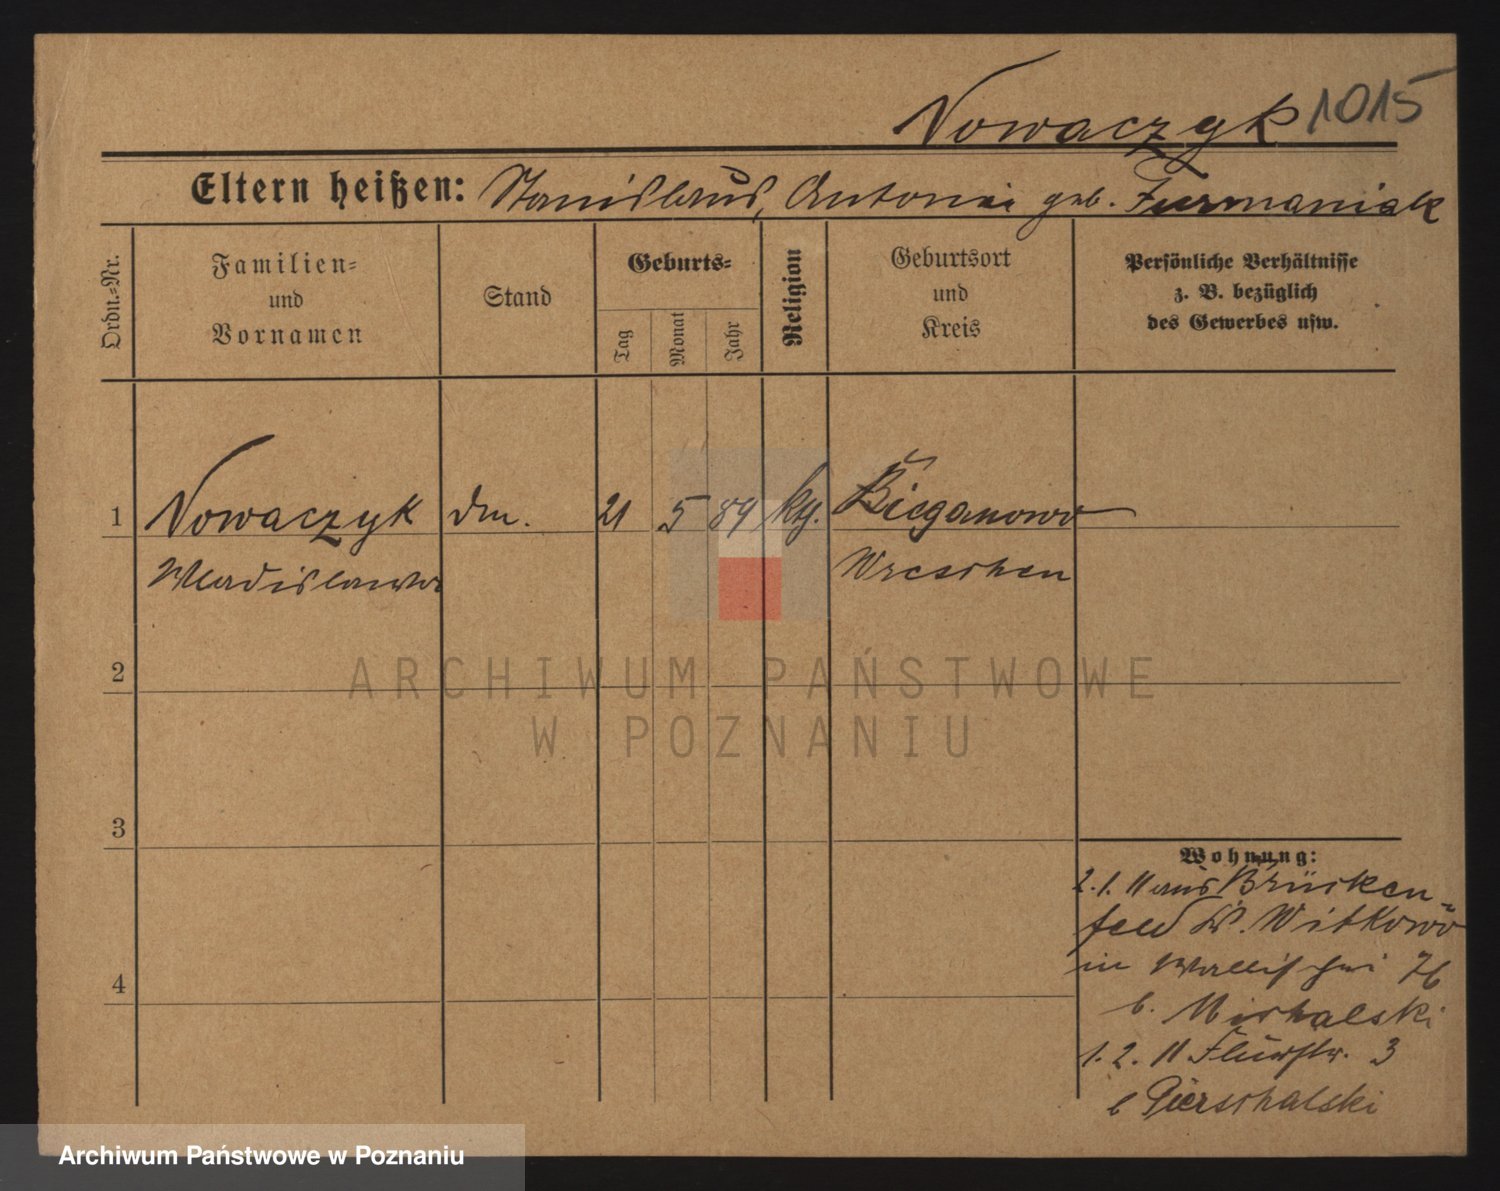 Nowaczyk 1015
Eltern heißen: Stanislaus, Antonie geb. Furmaniak
Ordn.-Nr.
Familien-
und
Vornamen
Stand
Geburts-
Tag
Monat
Jahr
Religion
Geburtsort
und
Kreis
Persönliche Verhältnisse
z. B. bezüglich
des Gewerbes usw.
1 Nowaczyk dm. 21 5 89 kth. Bieganowo
Wladislawa Wreschen
2
3
4
Wohnung:
2. 1. 11 aus Brücken-
feld Kr. Witkowo
in Wallischei 76
b. Michalski
1. 2. 11 Flurstr. 3
b Pierschalski
ARCHIWUM PAŃSTWOWE
W POZNANIU
Archiwum Państwowe w Poznaniu